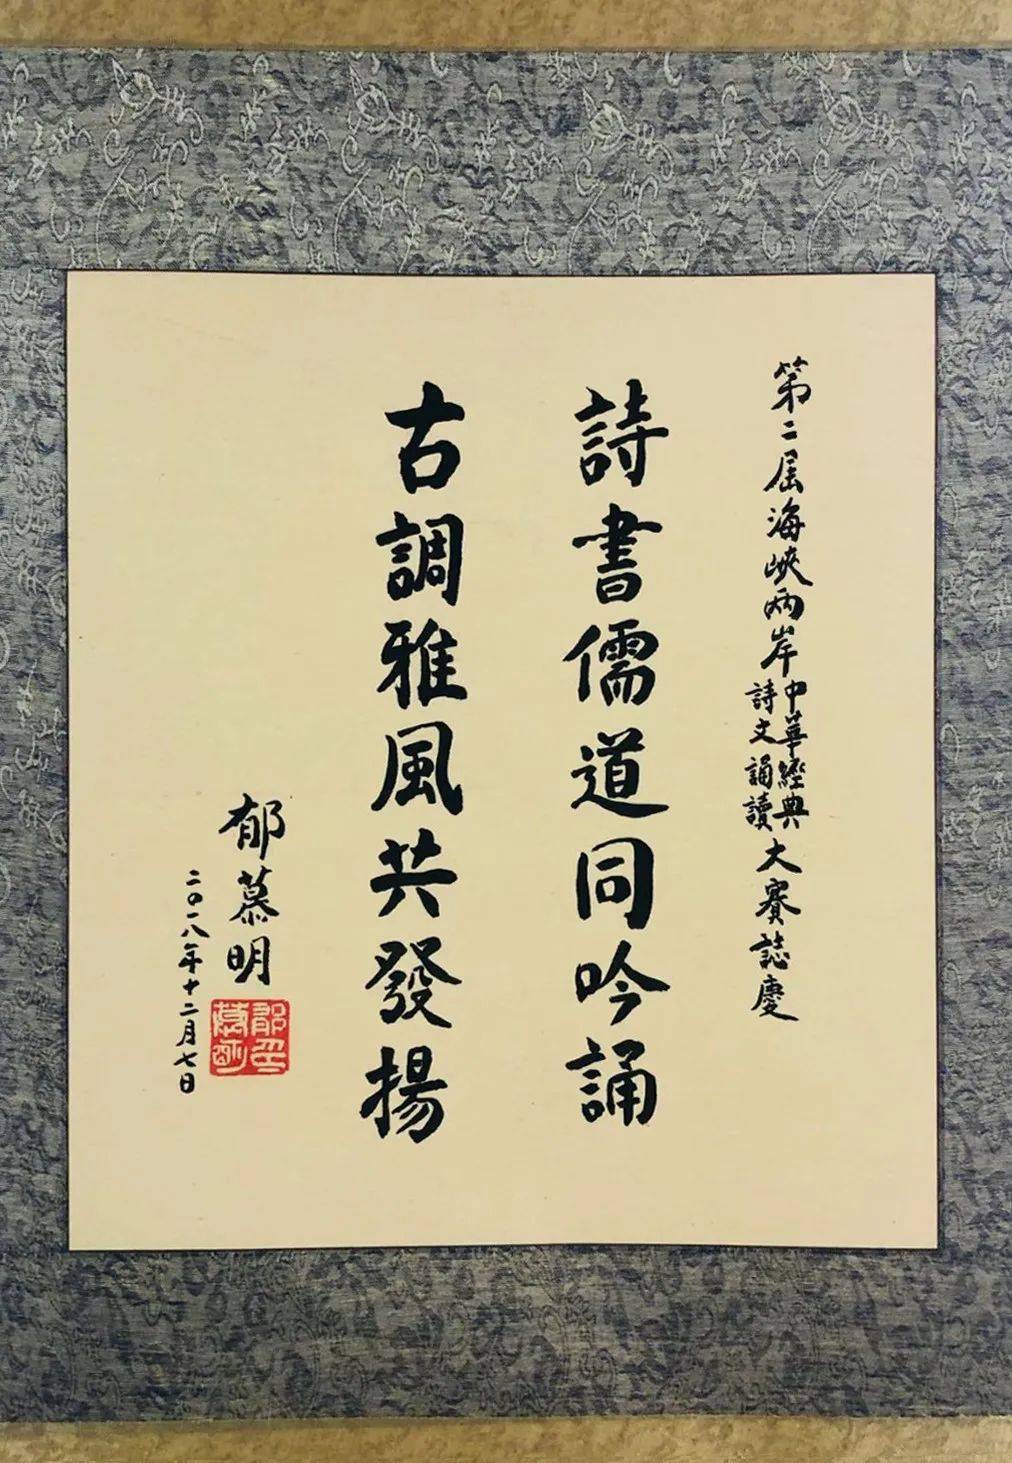 第二屆海峽兩岸中華經典詩文誦讀大賽誌慶
詩書儒道同吟誦
古調雅風共發揚
郁慕明
二〇一八年十二月七日
郁慕明印